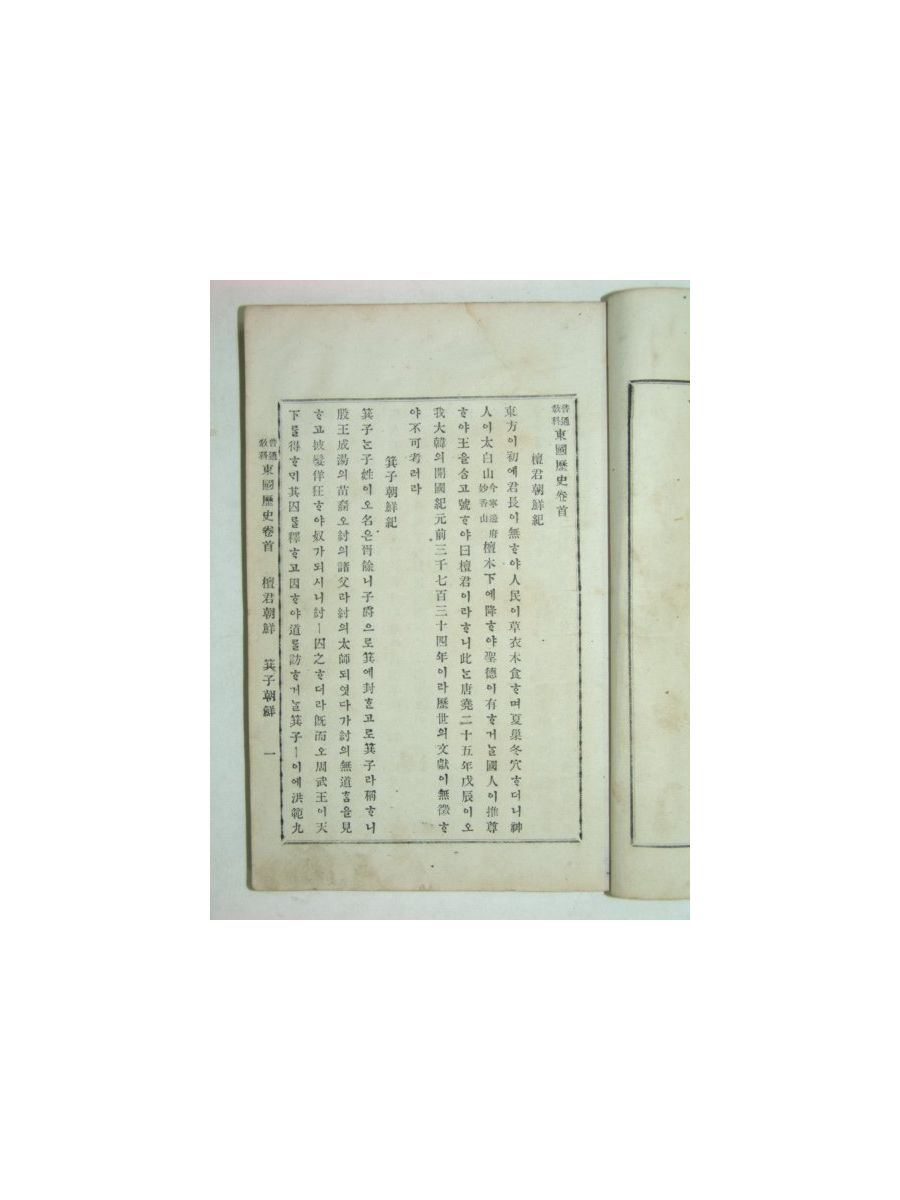 普通教科東國歷史卷首
檀君朝鮮紀
東方이初에君長이無ᄒᆞ야人民이草衣木食ᄒᆞ며夏巢冬穴ᄒᆞ더니神
人이太白山今寧邊府妙香山檀木下에降ᄒᆞ야聖德이有ᄒᆞ거ᄂᆞᆯ國人이推尊
ᄒᆞ야王을삼고號ᄒᆞ야曰檀君이라ᄒᆞ니此ᄂᆞᆫ唐堯二十五年戊辰이오
我大韓의開國紀元前三千七百三十四年이라歷世의文獻이無徵ᄒᆞ
야不可考러라
箕子朝鮮紀
箕子ᄂᆞᆫ子姓이오名은胥餘니子爵으로箕에封ᄒᆞᆫ고로箕子라稱ᄒᆞ니
殷王成湯의苗裔오紂의諸父라紂의太師되엿다가紂의無道ᄒᆞᆷ을見
ᄒᆞ고披髮佯狂ᄒᆞ야奴가되시니紂ㅣ囚之ᄒᆞ더라旣而오周武王이天
下를得ᄒᆞᄆᆡ其囚를釋ᄒᆞ고因ᄒᆞ야道를訪ᄒᆞ거ᄂᆞᆯ箕子ㅣ이에洪範九
普通教科東國歷史卷首 檀君朝鮮 箕子朝鮮 一